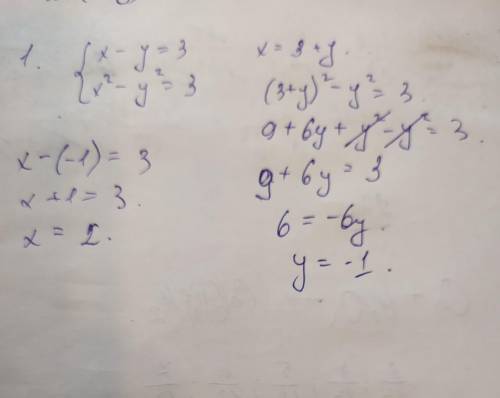 1. { x - y = 3
x² - y² = 3
x = 3 + y.
(3+y)² - y² = 3.
9 + 6y + y² - y² = 3.
9 + 6y = 3
6 = -6y.
y = -1.
x - (-1) = 3
x + 1 = 3.
x = 2.